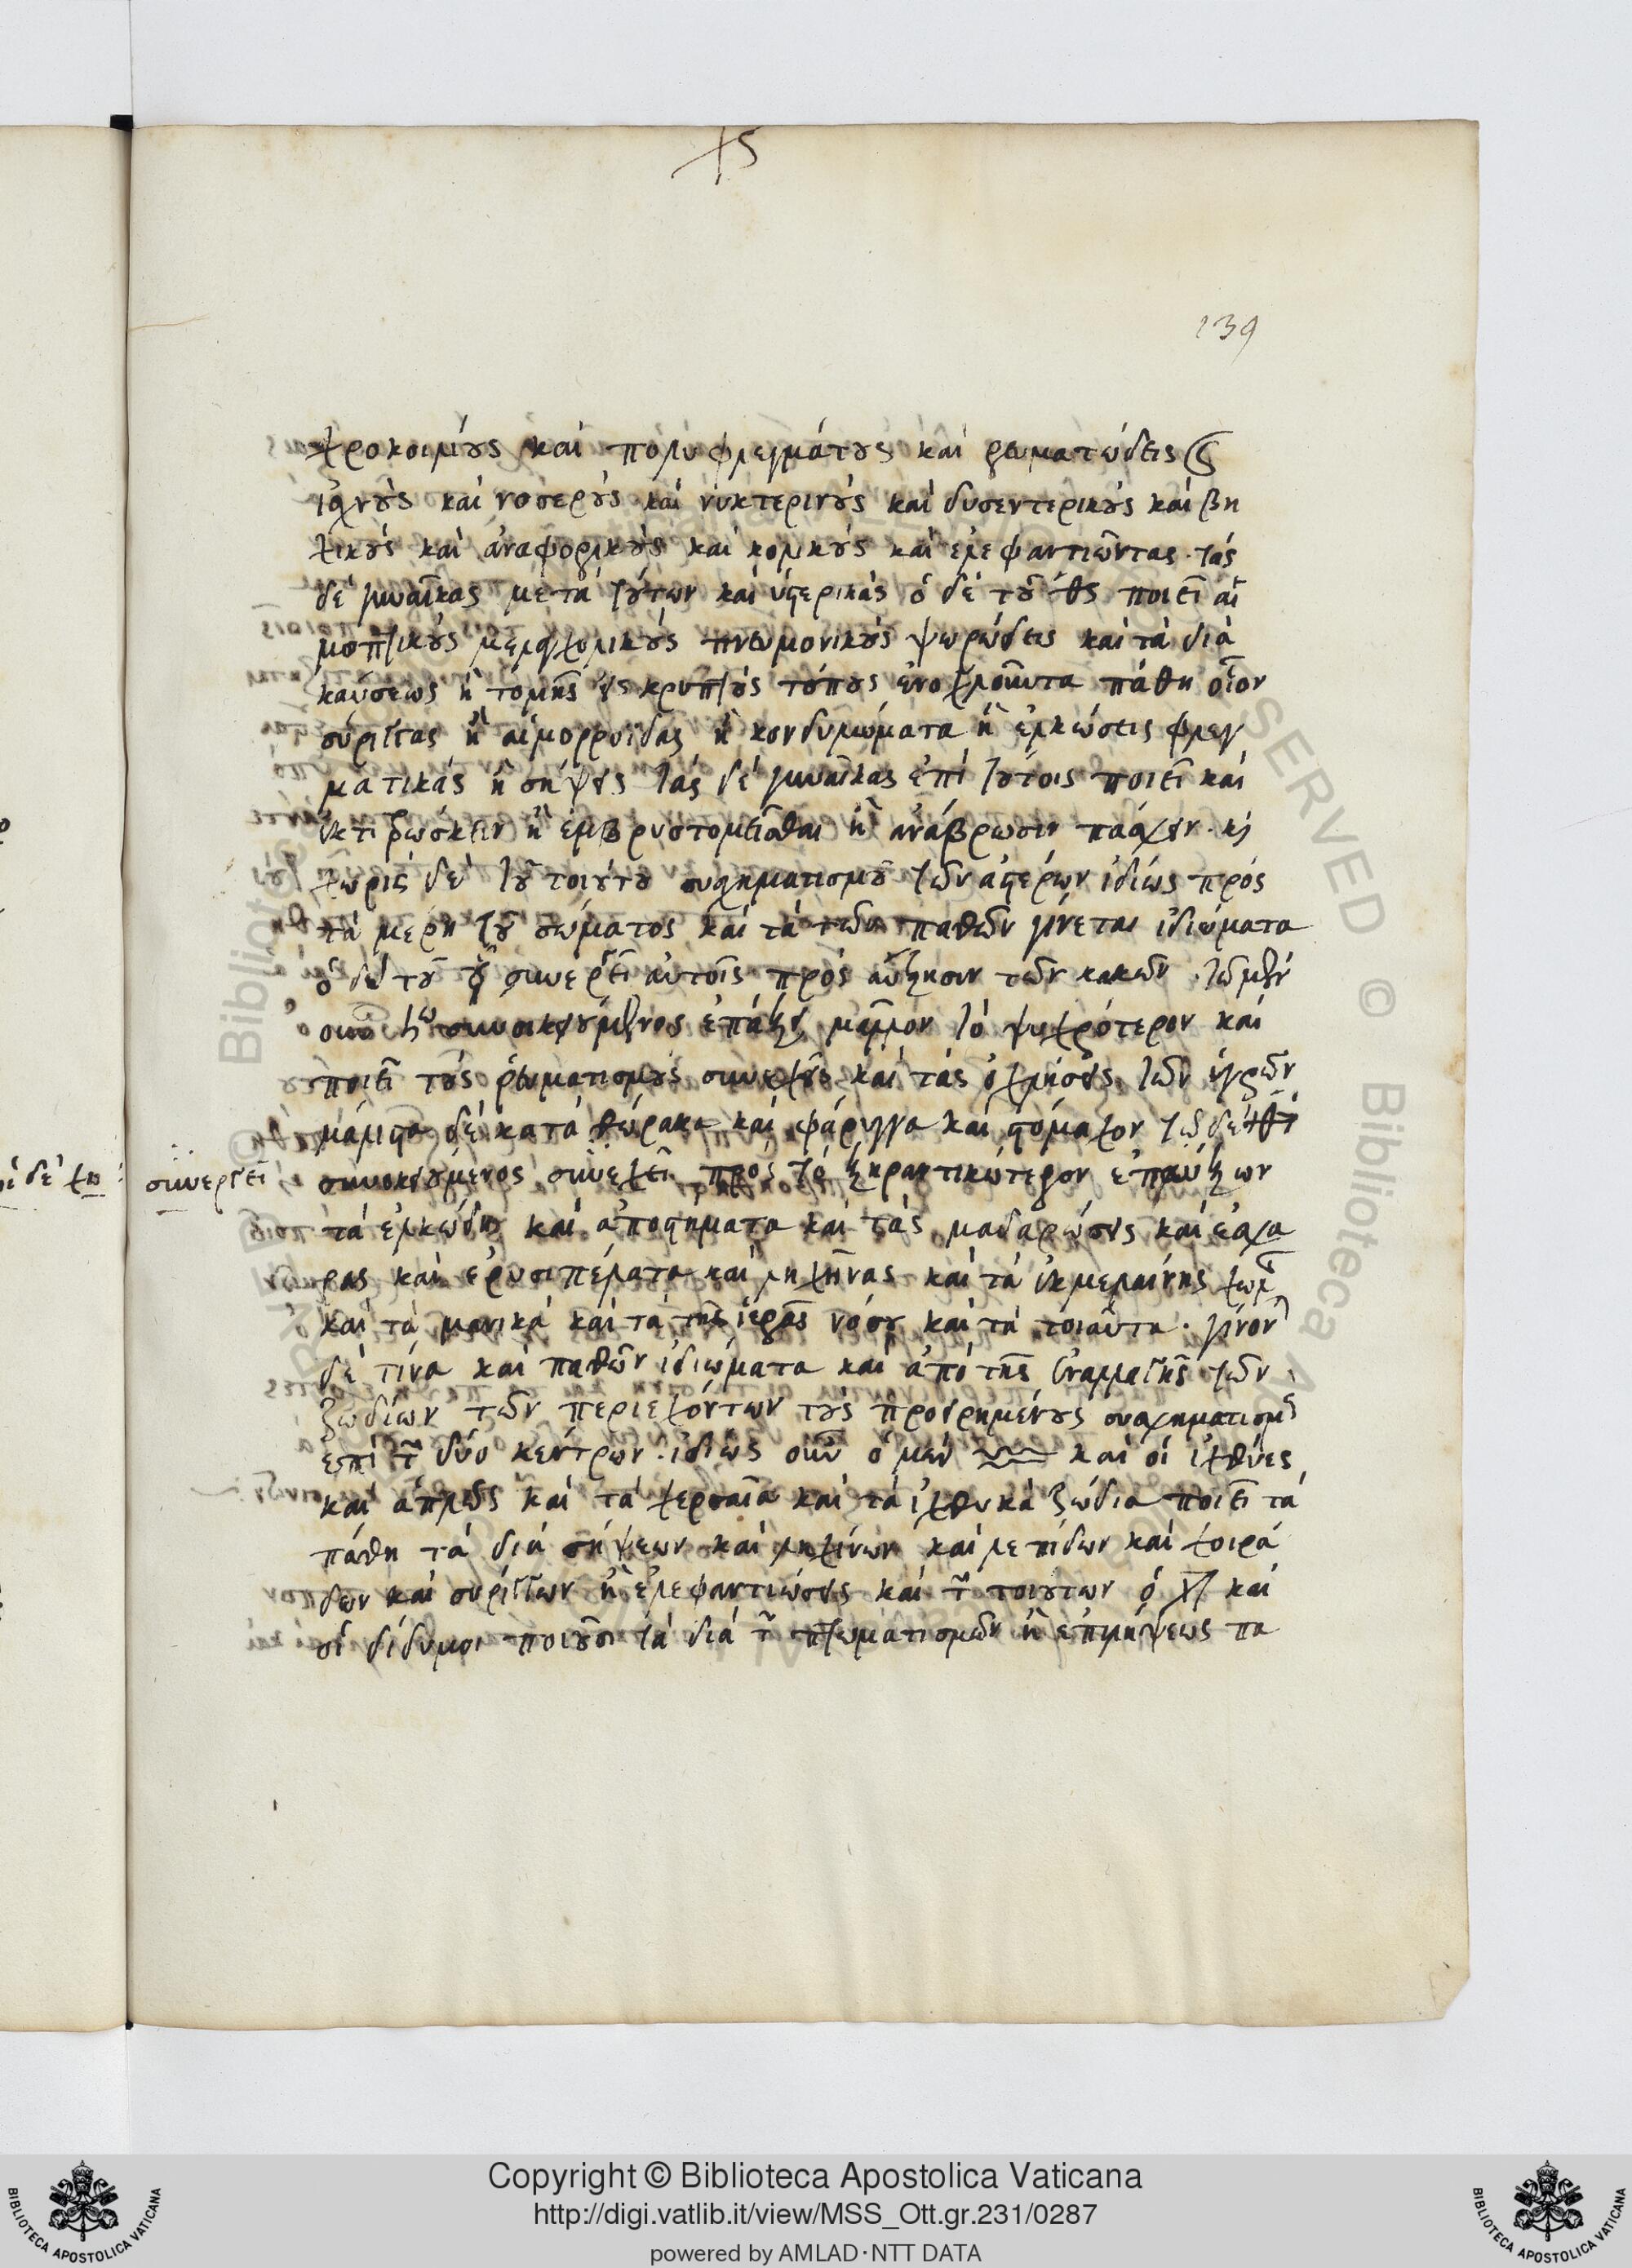 139
χροκοιλίους καὶ πολυφλεγμάτους καὶ ῥευματώδεις
ἰσχνοὺς καὶ νοσεροὺς καὶ νυκτερινοὺς καὶ δυσεντερικοὺς καὶ βη
χικοὺς καὶ ἀναφορικοὺς καὶ κολικοὺς καὶ ἐλεφαντιῶντας. τὰς
δὲ γυναῖκας μετὰ τούτων καὶ ὑστερικάς ὁ δὲ τοῦ ποιεῖ αἱ
μοπτικοὺς μελαγχολικοὺς πνευμονικοὺς ψωρώδεις καὶ τὰ διὰ
καύσεως ἢ τομῆς εἰς κρυπτοὺς τόπους ἐνοχλοῦντα πάθη οἷον
σύριγγας ἢ αἱμορροΐδας ἢ κονδυλώματα ἢ ἑλκώσεις φλεγ
ματικὰς ἢ σήψεις τὰς δὲ γυναῖκας ἐπὶ τούτοις ποιεῖ καὶ
ἐκτιτρώσκειν ἢ ἐμβρυοτομεῖσθαι ἢ ἀνάβρωσιν πάσχειν. κὶ
χωρὶς δὲ τοῦ τοιούτου συσχηματισμοῦ τῶν ἀστέρων ἰδίως πρὸς
τὰ μέρη τοῦ σώματος καὶ τὰ τῶν παθῶν γίνεται ἰδιώματα
ὁ δὲ τοῦ ☿ συνεργεῖ αὐτοῖς πρὸς αὔξησιν τῶν κακῶν. τῷ μὲν
συνοικειούμενος ἐπὶ μᾶλλον τὸ ψυχρότερον καὶ
ποιεῖ τοὺς ῥευματισμοὺς συνεχεῖς καὶ τὰς ὀχλήσεις τῶν ὑγρῶν
μάλιστα δὲ κατὰ θώρακα καὶ φάρυγγα καὶ στόμαχον τῷ δὲ
συνεργεῖ
συνοικειούμενος συνεχεῖ πρὸς τὸ ξηραντικώτερον ἐπαύξων
τὰ ἑλκώδη καὶ ἀποστήματα καὶ τὰς μαδαρώσεις καὶ ἐσχά
ρας καὶ ἐρυσιπέλατα καὶ λιχῆνας καὶ τὰ ἐκ μελαίνης χολῆς
καὶ τὰ μανικὰ καὶ τὰ τῆς ἱερᾶς νόσου καὶ τὰ τοιαῦτα. γίνον
δέ τινα καὶ παθῶν ἰδιώματα καὶ ἀπὸ τῆς ἐναλλαγῆς τῶν
ζωδίων τῶν περιεχόντων τοὺς προειρημένους συσχηματισμ
ἐπὶ τ δύο κέντρων. ἰδίως οὖν ὁ μὲν καὶ οἱ ἰχθύες
καὶ ἁπλῶς καὶ τὰ χερσαῖα καὶ τὰ ἰχθυικὰ ζώδια ποιεῖ τὰ
πάθη τὰ διὰ σήψεων καὶ λιχήνων καὶ λεπίδων καὶ χοιρά
δων καὶ συρίγγων ἢ ἐλεφαντιώσεις καὶ τ τοιούτων ὁ ♐ καὶ
οἱ δίδυμοι ποιοῦσι τὰ διὰ τ πτωματισμῶν ἢ ἐπιλήψεως πα
Copyright © Biblioteca Apostolica Vaticana
http://digi.vatlib.it/view/MSS_Ott.gr.231/0287
powered by AMLAD·NTT DATA
BIBLIOTECA APOSTOLICA VATICANA
BIBLIOTECA APOSTOLICA VATICANA